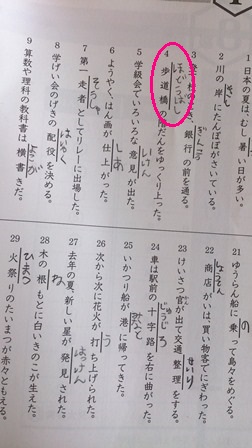 1 日本の夏は、むし暑い日が多い。
2 川の岸にたんぽぽがさいている。
きし
3 登校のとき、銀行の前を通る。
ぎんこう
4 歩道橋の階だんをゆっくり上った。
ほどうはし
5 学級会でいろいろな意見が出た。
いけん
6 ようやく、はん画が仕上がった。
しあ
7 第一走者としてリレーに出場した。
そうしゃ
8 学げい会のげきの配役を決める。
はいやく
9 算数や理科の教科書は横書きだ。
よこが
21 ゆうらん船に乗って島々をめぐる。
の
22 商店がいは買い物客でにぎわった。
しょうてん
23 けいさつ官が出て交通整理をする。
せいり
24 車は駅前の十字路を右に曲がった。
じゅうじろ
25 いかつり船が港に帰ってきた。
みなと
26 次から次に花火が打ち上げられた。
う
27 去年の夏、新しい星が発見された。
はっけん
28 木の根もとに白いきのこが生えた。
ね
29 火祭りのたいまつが赤々ともえる。
ひまつ